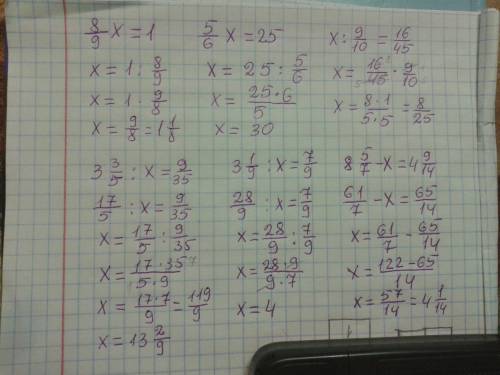 8/9 x = 1
x = 1 : 8/9
x = 1 · 9/8
x = 9/8 = 1 1/8
5/6 x = 25
x = 25 : 5/6
x = 25·6/5
x = 30
x : 9/10 = 16/45
x = 16/45 · 9/10
x = 8·1/5·5 = 8/25
3 3/5 : x = 9/35
17/5 : x = 9/35
x = 17/5 : 9/35
x = 17·35/5·9
x = 17·7/9 = 119/9
x = 13 2/9
3 1/9 : x = 7/9
28/9 : x = 7/9
x = 28/9 : 7/9
x = 28·9/9·7
x = 4
8 5/7 - x = 4 9/14
61/7 - x = 65/14
x = 61/7 - 65/14
x = 122-65/14
x = 57/14 = 4 1/14